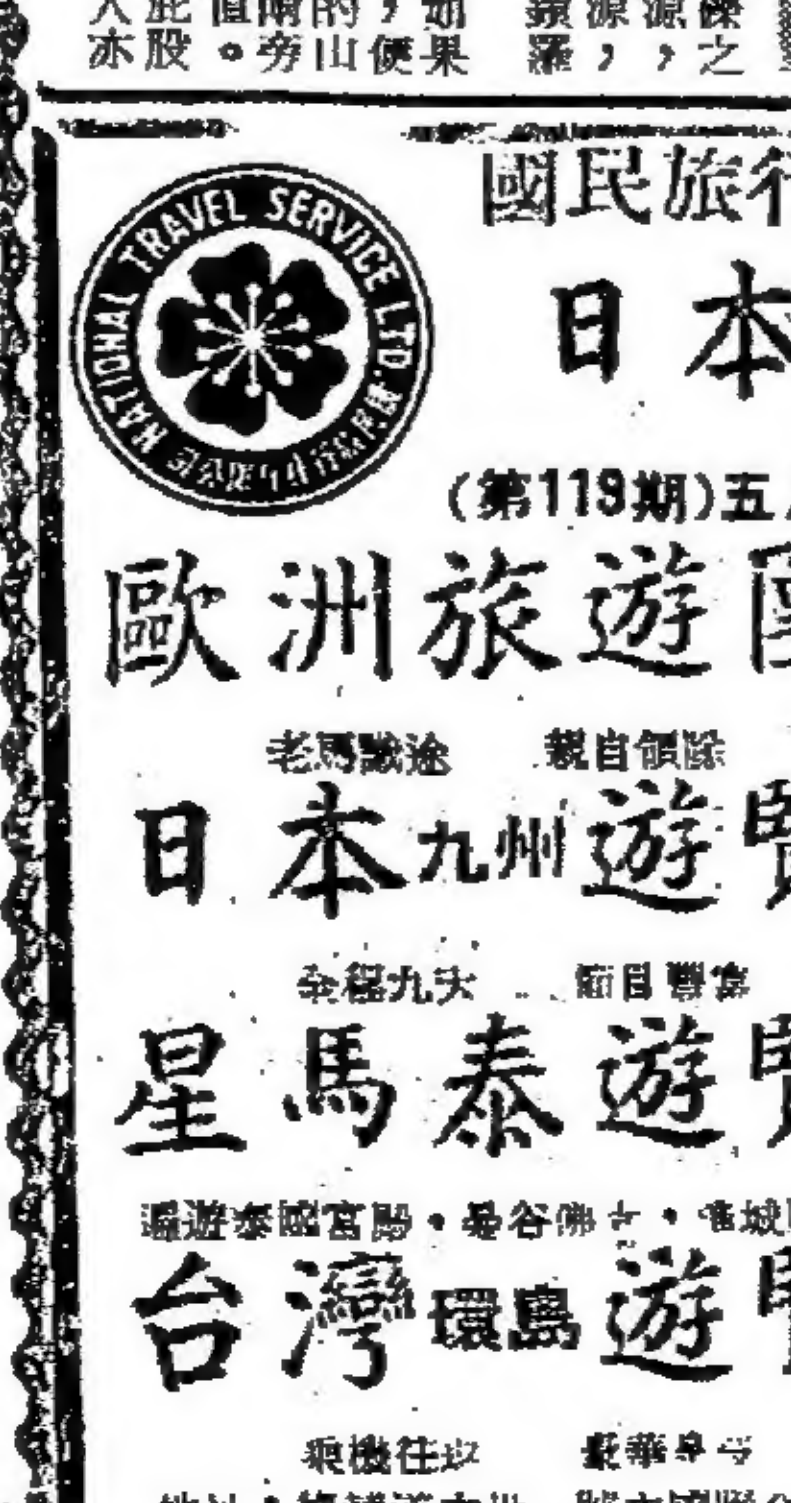 亦股。旁山便果
羅,,之
NATIONAL TRAVEL SERVICE LTD.
國民旅行
日本
(第119期)五
歐洲旅遊
老馬識途 親自領隊
日本九州遊
全程九天 節目豐富
星馬泰遊
遍遊泰國宮殿・曼谷佛寺・
台灣環島遊
乘機往